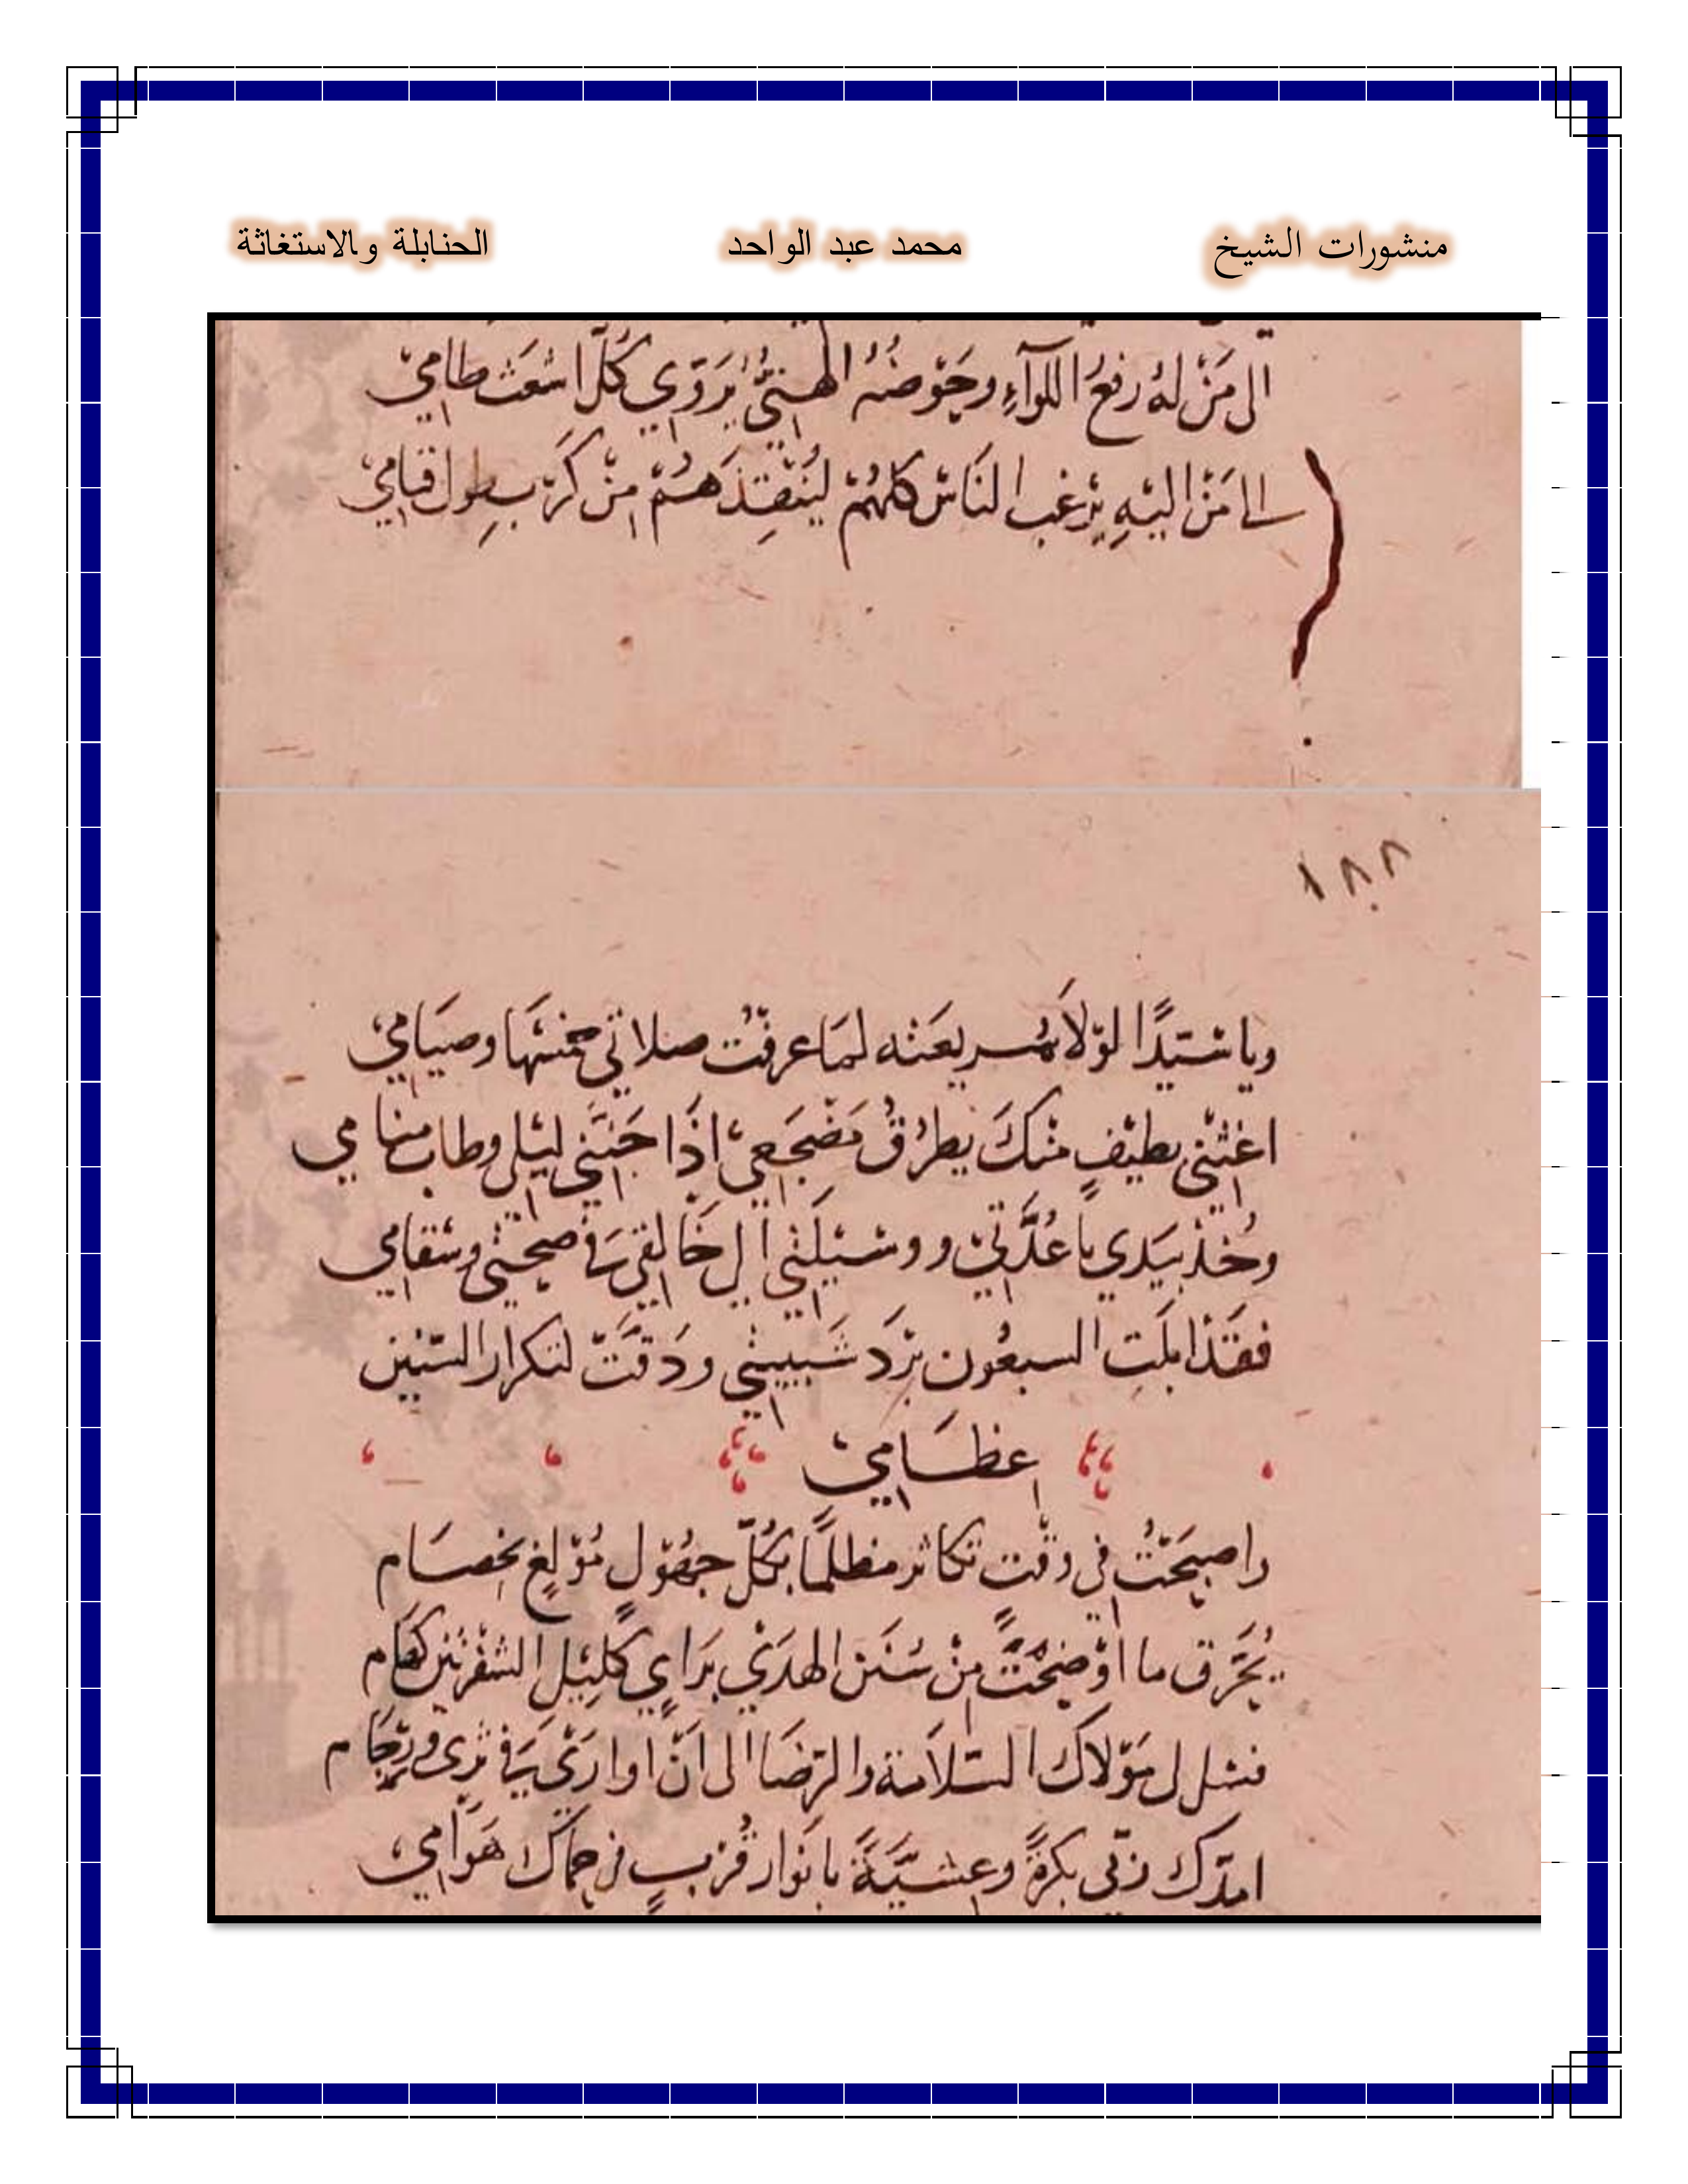 منشورات الشيخ محمد عبد الواحد الحنابلة والاستغاثة
الى مَنْ لهُ رفعُ اللوآءِ وحَوْضُهُ الهنيُّ يُرَوّي كُلَّ اشعَث ظامِيْ
الى مَنْ اليْهِ يرْغب النَاسُ كلهُمْ ليُنْقِذَهُمْ مِنْ كَرْبِ طول قيامِيْ
١٨٨
ويا سَيّدًا لوْلاَ بعَثه لمَا عرفْتُ صلاتي خمسَهَا وصيَامِي
اغثْنِي بطيْفٍ مْنكَ يطرُقُ مَضْجَعِيْ اذَا جَنَّنِي ليْلي وطاب منامِي
وخُذْ بيَدي يا عُدَّتِيْ ووسْيلَتِي الى خَالقِي فِي صِحتي وسَقامِي
فقَدْ ابلَتِ السبعُون بُرْدَ شَبِيبتي ودَقتَّ لتكرار السّنين
عِظَامِيْ
واصبَحْتُ في وقْت تكاثر مظلمًا بكُلّ جهُوْلٍ مُوْلعٍ بخِصَام
يُحَرّق ما اوْضحْتَ مِنْ سُنَن الهدَيْ برَايٍ كَلِيْل الشفْرتْين كهَام
فسَل لي مَوْلاَك السّلاَمة والرّضَا الى اَنْ اوارَىْ فِيْ ثرَى ورِجَام
امدّك ربّي بكرةً وعشيَّةً بانوَار قُرْبٍ في حِمَاك هَوَامِيْ